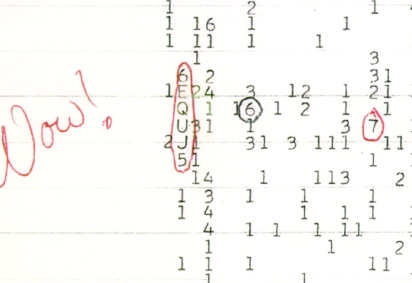 1 2 1
1 16 1 1
1 11 1 1
1 3
6 2 31
1 E 24 3 12 1 21
Q 1 16 1 2 1 1
U 31 1 3 7
2 J 1 31 3 111 11
5 1 1
14 1 113 2
1 3 1 1 1
1 4 1 1 1
4 1 1 1 11
1 1 2
1 1 1 11
1 1
Wow!